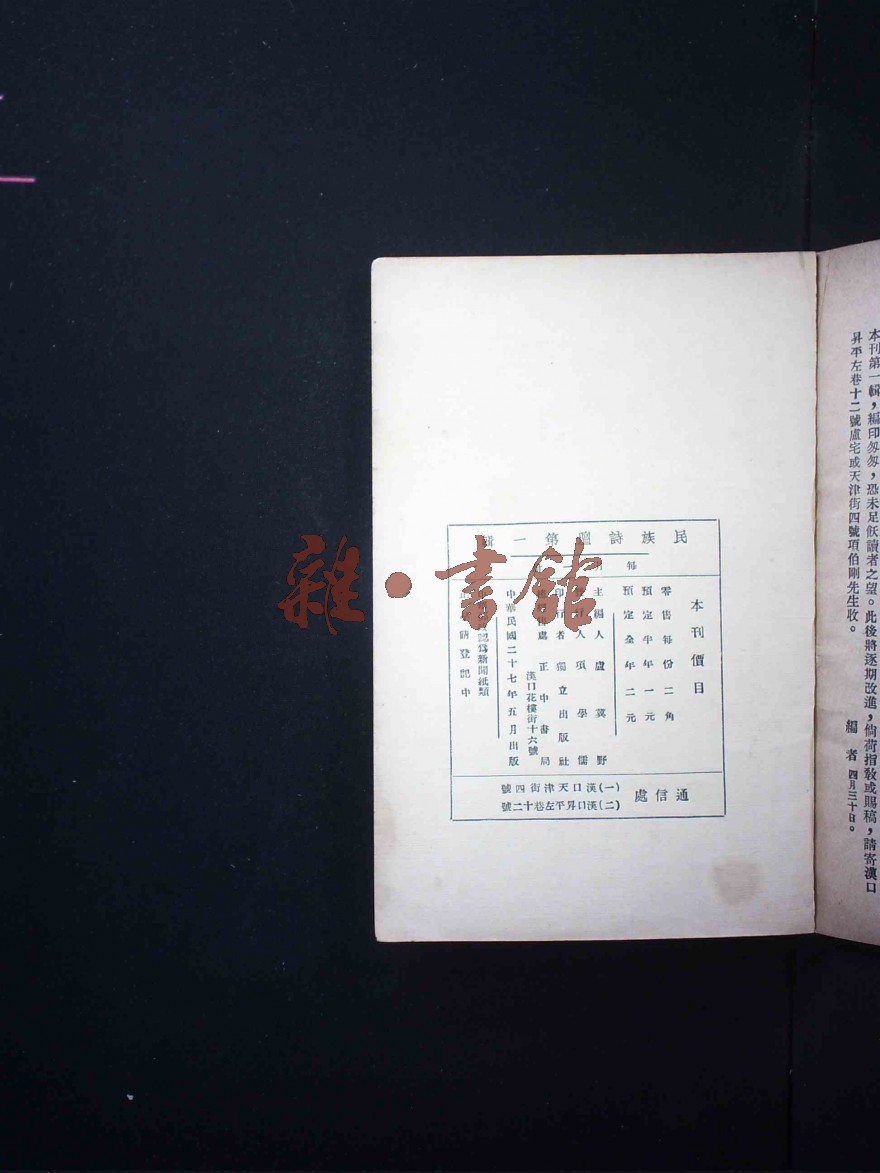 本刊第一輯，編印匆匆，恐未足饜讀者之望。此後將逐期改進，倘荷指敎或賜稿，請寄漢口
昇平左巷十二號盧宅或天津街四號項伯剛先生收。
編者 四月三十日。
民族詩壇第一輯
每一
本刊價目
零售每份二角
預定半年一元
預定全年二元
主編人盧冀野
發行人項學儒
印行者獨立出版社
總經售處正中書局
漢口花樓街十六號
中華民國二十七年五月出版
認爲新聞紙類
請登記中
通信處
(一)漢口天津街四號
(二)漢口昇平左巷十二號
雜·書館